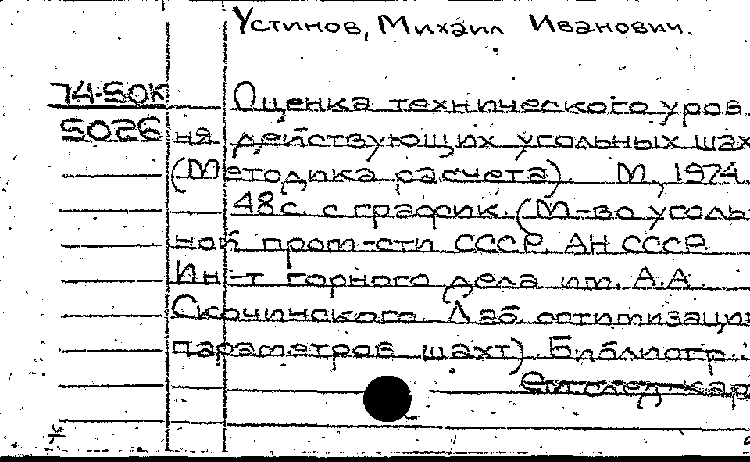 Устинов, Михаил Иванович.
74-50К Оценка технического уров
5026 ня действующих угольных шах
(Методика расчета). М., 1974.
48 с. с график. (М-во уголь
ной пром-сти СССР. АН СССР.
Ин-т горного дела им. А.А.
Скочинского. Лаб. оптимизации
параметров шахт). Библиогр.:
См след кар